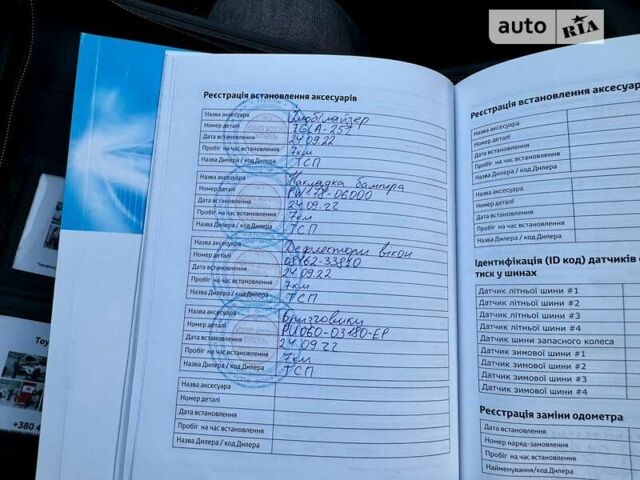 auto RIA
Реєстрація встановлення аксесуарів
Назва аксесуара Імобілайзер
Номер деталі IGLA-257
Дата встановлення 24.09.22
Пробіг на час встановлення 7км
Назва Дилера / код Дилера ТСП
Назва аксесуара Накладка бампера
Номер деталі PW178-06000
Дата встановлення 24.09.22
Пробіг на час встановлення 7км
Назва Дилера / код Дилера ТСП
Назва аксесуара Дефлектори вікон
Номер деталі 08162-33810
Дата встановлення 24.09.22
Пробіг на час встановлення 7км
Назва Дилера / код Дилера ТСП
Назва аксесуара Бризговики
Номер деталі PU060-03180-EP
Дата встановлення 24.09.22
Пробіг на час встановлення 7км
Назва Дилера / код Дилера ТСП
Назва аксесуара
Номер деталі
Дата встановлення
Пробіг на час встановлення
Назва Дилера / код Дилера
Реєстрація встановлення аксесуа
Назва аксесуара
Номер деталі
Дата встановлення
Пробіг на час встановлення
Назва Дилера / код Дилера
Назва аксесуара
Номер деталі
Дата встановлення
Пробіг на час встановлення
Назва Дилера / код Дилера
Ідентифікація (ID код) датчиків
тиск у шинах
Датчик літньої шини #1
Датчик літньої шини #2
Датчик літньої шини #3
Датчик літньої шини #4
Датчик шини запасного колеса
Датчик зимової шини #1
Датчик зимової шини #2
Датчик зимової шини #3
Датчик зимової шини #4
Реєстрація заміни одометра
Дата встановлення
Номер наряд-замовлення
Найменування/код Дилера
Toy
+380 4